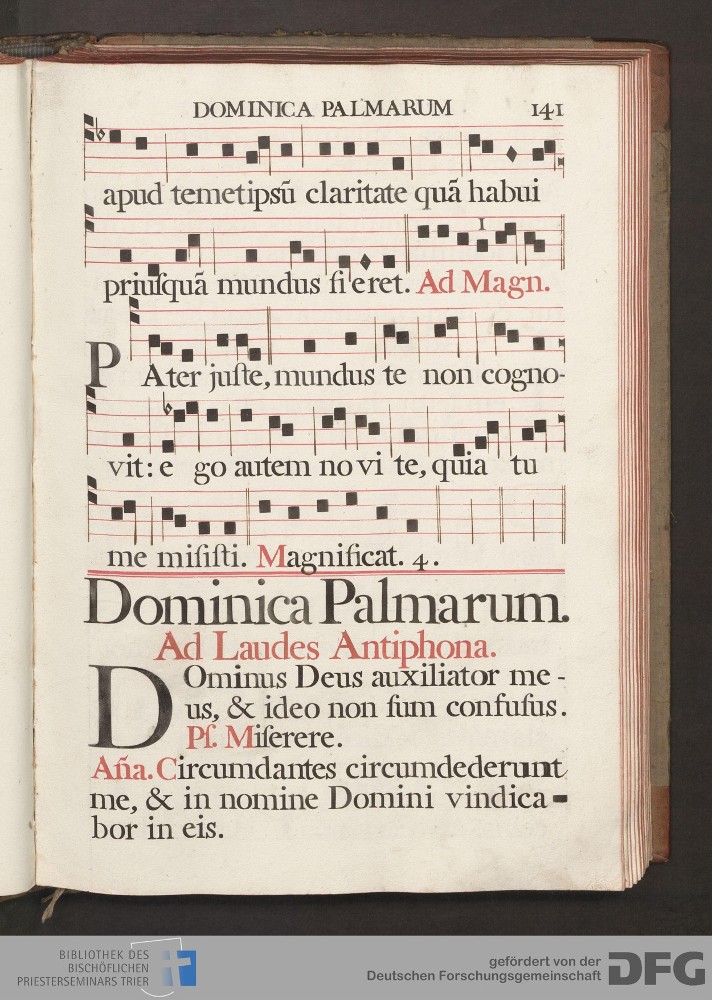 DOMINICA PALMARUM 141
apud temetipsũ claritate quã habui
priuſquã mundus fieret. Ad Magn.
PAter juſte, mundus te non cogno-
vit: e go autem no vi te, quia tu
me miſiſti. Magnificat. 4.
Dominica Palmarum.
Ad Laudes Antiphona.
DOminus Deus auxiliator me -
us, & ideo non ſum confuſus.
Pſ. Miſerere.
Aña. Circumdantes circumdederunt
me, & in nomine Domini vindica-
bor in eis.
BIBLIOTHEK DES
BISCHÖFLICHEN
PRIESTERSEMINARS TRIER
gefördert von der
Deutschen Forschungsgemeinschaft
DFG